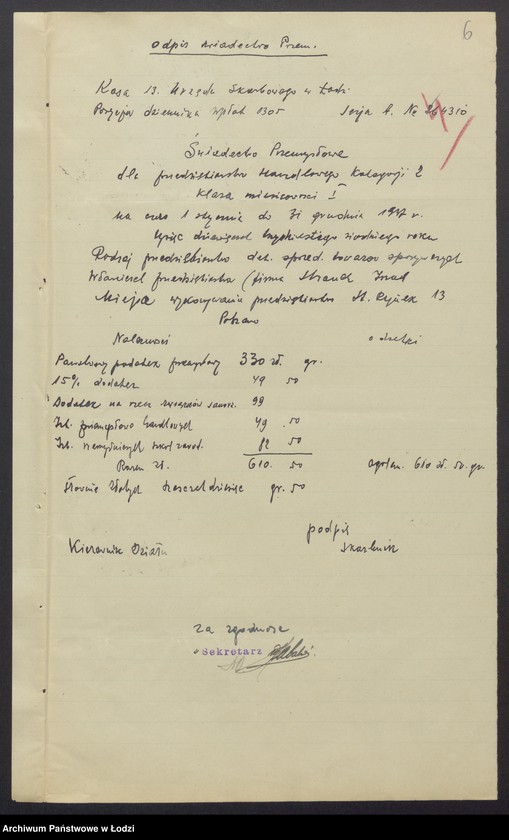 6
Odpis świadectwa Przem.
Kasa 13 Urzędu Skarbowego w Łodzi
Pozycja dziennika wpłat 1305 Serja A. № 264310
Świadectwo Przemysłowe
dla przedsiębiorstw Handlowego Kategorji 2
Klasa miejscowości I
na czas 1 stycznia do 31 grudnia 1937 r.
tysiąc dziewięćset trzydziestego siódmego roku
Rodzaj przedsiębiorstwa det. sprzed. towarów spożywczych
Właściciel przedsiębiorstwa (firma
Miejsce wykonywania przedsiębiorstwa St. Rynek 13
Pobrano
Należność odsetki
Państwowy podatek przemysłowy 330 zł. gr.
15% dodatek 49 50
Dodatek na rzecz związków samorz. 99
Izb. przemysłowo handlowych 49 . 50
Izb. rzemieślniczych szkół zawod. 82 50
Razem zł. 610. 50 ogółem 610 zł. 50. gr.
Słownie złotych sześćset dziesięć gr. 50
podpis
Kierownik Działu Skarbnik
za zgodność
Sekretarz
Archiwum Państwowe w Łodzi